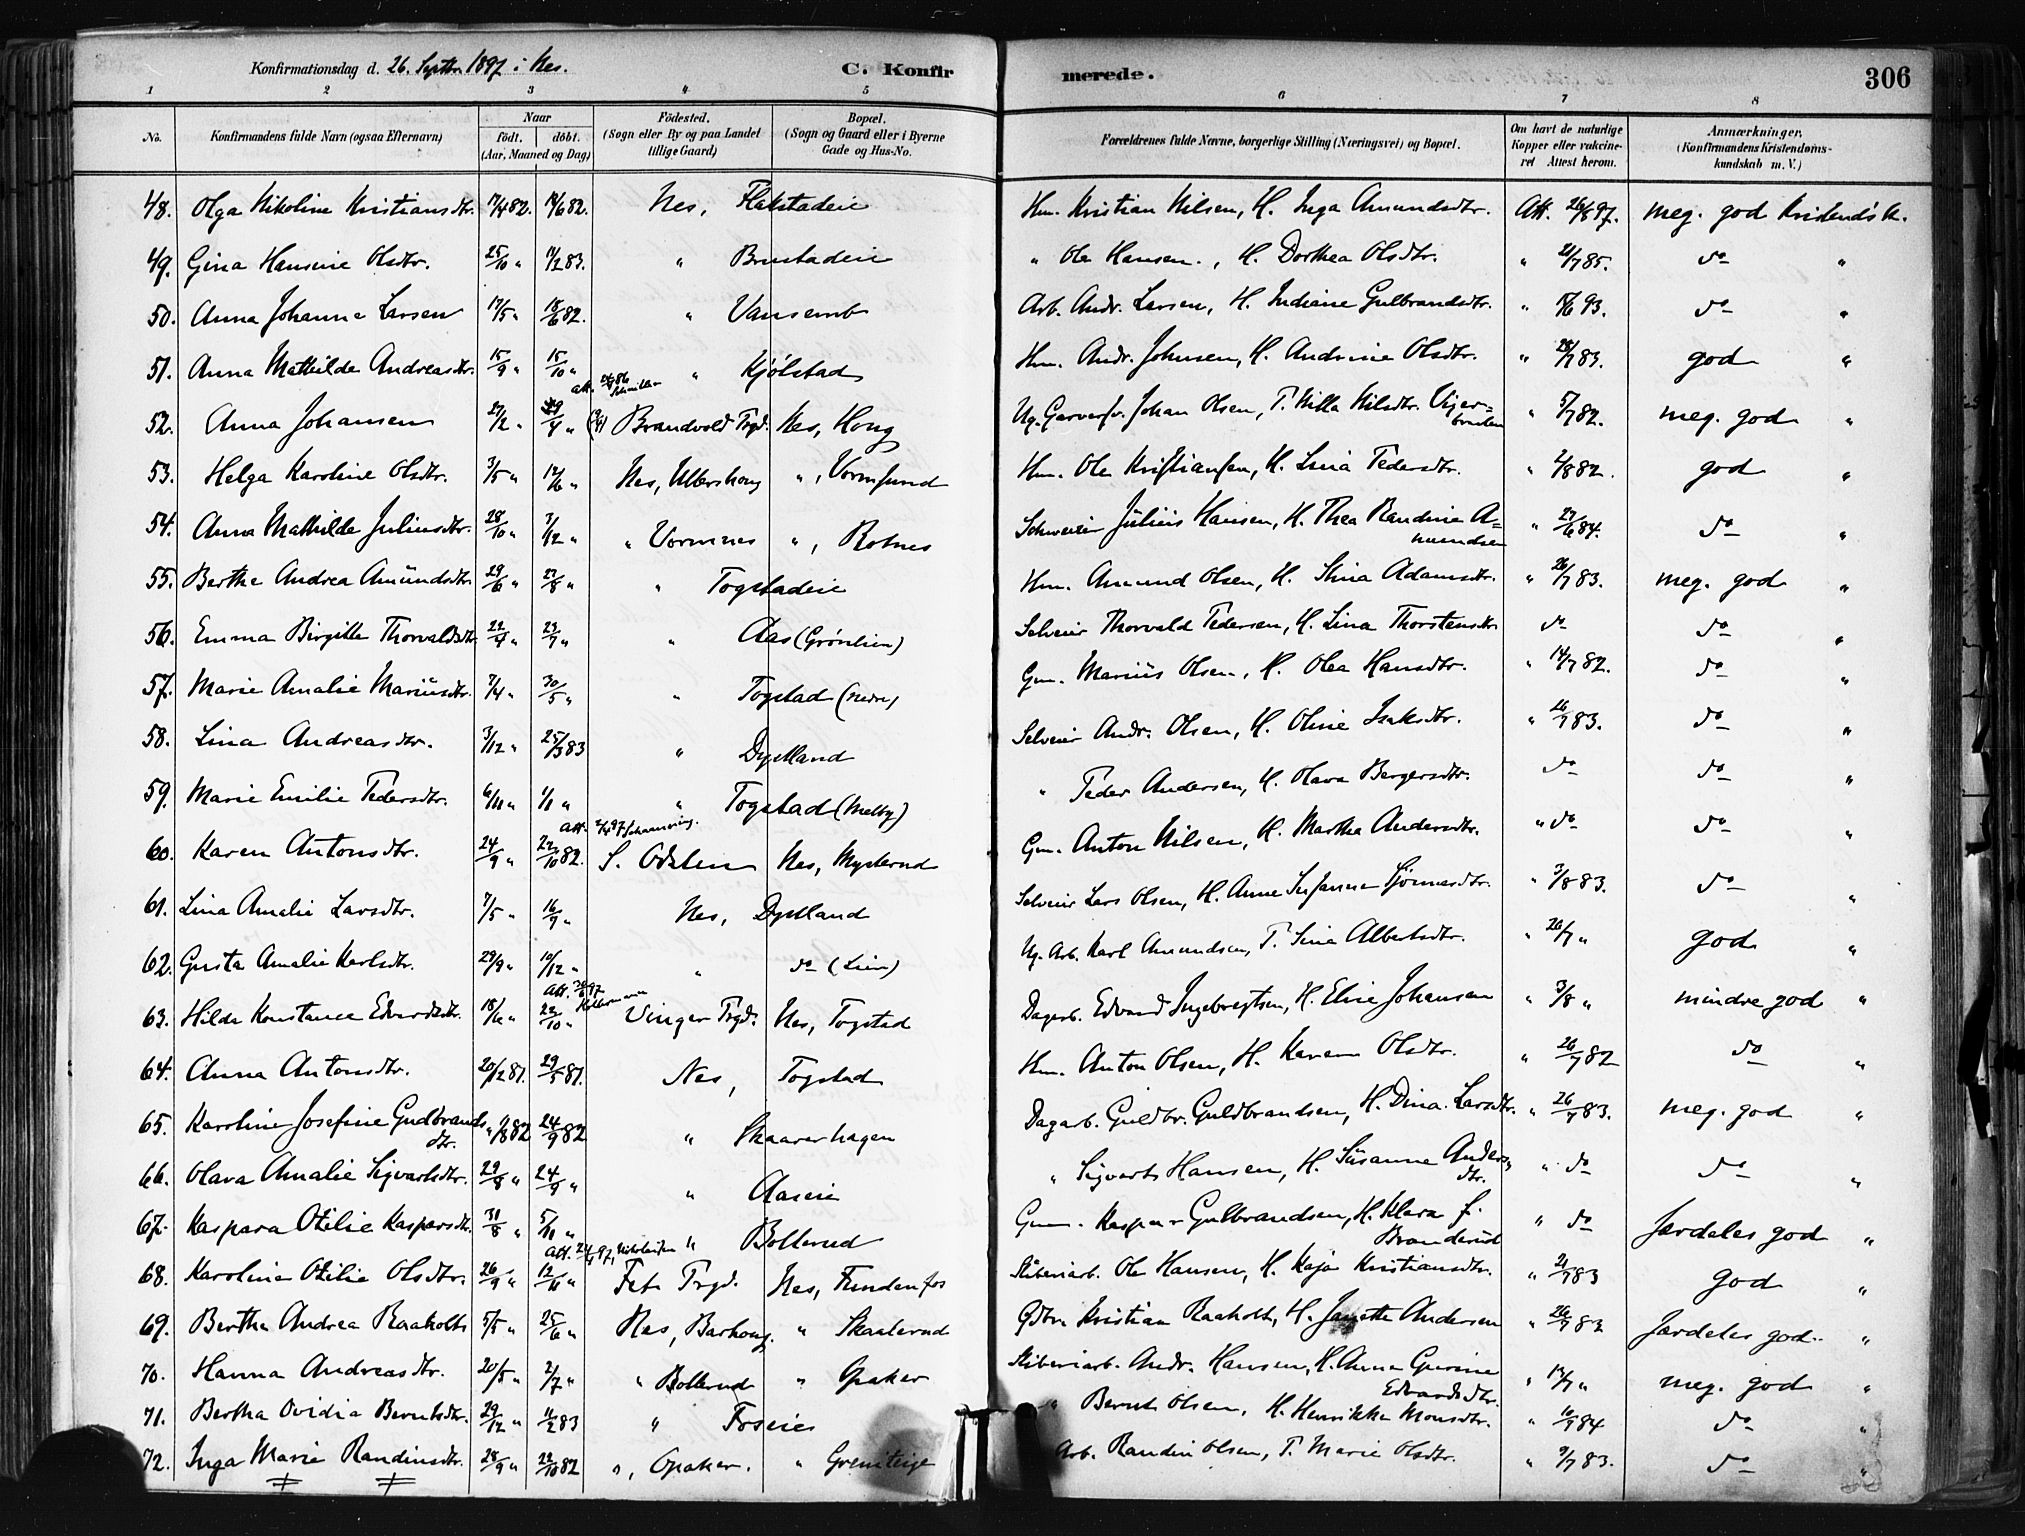 Konfirmationsdag d. 26. Septbr 1897 i Nes. C. Konfirmerede. 306
1 2 3 4 5 6 7 8
No. Konfirmandens fulde Navn (ogsaa Efternavn) Naar født. døbt. (Aar, Maaned og Dag) Fødested. (Sogn eller By og paa Landet tillige Gaard) Bopæl. (Sogn og Gaard eller i Byerne Gade og Hus-No. Forældrenes fulde Navne, borgerlige Stilling (Næringsvei) og Bopæl. Om havt de naturlige Kopper eller vakcineret Attest herom. Anmærkninger. (Konfirmandens Kristendomskundskab m. V.)
48. Olga Nikoline Kristiansdtr. 17/4 82. 18/6 82. Nes, Flakstadeie Hm. Kristian Nilsen, H. Inga Amundsdtr. Att. 26/8 97. meg. god Kristendsk.
49. Gina Hansine Olsdtr. 25/10 " 11/2 83. " Brustadeie " Ole Hansen, H. Dorthea Olsdtr. " 21/7 85. do "
50. Anna Johanne Larsen 17/5 " 18/6 82. " Vansemb Arb. Andr. Larsen, H. Indiane Gulbrandsdtr. " 93. do "
51. Anna Mathilde Andreasdtr. 15/9 " 15/10 " " Kjölstad Hm. Andr. Johnsen, H. Andrine Olsdtr. " 83. god "
52. Anna Johansen 27/2 " Brandvold Prgd. Nes, Hong Ug. Garversv. Johan Olsen, P. Milla Nilsdtr. " 5/7 82. meg. god "
53. Helga Karoline Olsdtr. 3/5 " " Nes, Ullershong ", Vormsund Hm. Ole Kristiansen, H. Lina Pedersdtr. " 2/8 82. god "
54. Anna Mathilde Juliusdtr. 28/10 " 3/12 " " Vormnes ", Rotnes Schweizer Julius Hansen, H. Thea Randine Amundsen " 27/6 84. do "
55. Berthe Andrea Amundsdtr. 29/6 " 27/8 " " Togstadeie Hm. Amund Olsen, H. Stina Adamsdtr. " 26/7 83. meg. god "
56. Emma Birgitte Thorvaldsdtr. 22/4 " 23/7 " " Aas (Grönlien) Selveier Thorvald Pedersen, H. Lina Thorstensdtr. do do "
57. Marie Amalie Mariusdtr. 7/4 " 30/5 " " Togstad (nedre) Gm. Marius Olsen, H. Olea Hansdtr. " 14/7 82. do "
58. Lina Andreasdtr. 3/12 " 25/3 83 " Dystland Selveier Andr. Olsen, H. Oline Isaksdtr. " 26/7 83. do "
59. Marie Emilie Pedersdtr. 6/11 " 1/1 " " Togstad (Melby) " Peder Andersen, H. Olava Bergersdtr. do do "
60. Karen Antonsdtr. 24/9 " 22/10 82. S. Odalen Nes, Mysterud Gm. Anton Nilsen, H. Marthea Andersdtr. " do do "
61. Lina Amalie Larsdtr. 7/5 " 16/9 " Nes, Dystland Selveier Lars Olsen, H. Anne Susanne " 3/8 83. do "
62. Gusta Amalie Karlsdtr. 29/9 " 10/12 " " do (Lien) Ug. Arb. Karl Amundsen, P. Sine Albertsdtr. " 26/7 " god "
63. Hilda Konstance Edvardsdtr. " 22/10 " Vinger Prgd. Nes, Togstad Dagarb. Edvard Ingebregtsen, H. Elise Johansen " 3/8 " mindre god "
64. Anna Antonsdtr. 81. 29/5 81. Nes, Togstad Hm. Anton Olsen, H. Karen Olsdtr. " 26/7 82 do "
65. Karoline Josefine Gudbrandsdtr. 82 24/9 82 " Skaarerhagen Dagarb. Guldbr. Guldbrandsen, H. Dina Larsdtr. " 26/7 83. meg. god "
66. Olava Amalie Sigvartsdtr. 29/8 " 24/9 " " Aaseie " Sigvart Hansen, H. Susanne Andersdtr. " do do "
67. Kaspara Otilie Kaspersdtr. 31/8 " 5/11 " " Bollerud Gm. Kasper Gulbrandsen, H. Klara f. Branderud " do særdeles god "
68. Karoline Otilie Olsdtr. 26/9 " 12/11 " Fet Prgd. Nes, Fundenfos Sliberiarb. Ole Hansen, H. Kaja Kristiansdtr. " 83 god "
69. Berthe Andrea Raaholt 5/5 " 25/6 " Nes, Barhong. " Skaalerud Gdbr. Kristian Raaholt, H. Janette Andersen " 26/7 83 særdeles god "
70. Hanna Andreasdtr. 20/5 " 2/7 " " Bollerud " Opaker Sliberiarb. Andr. Hansen, H. Anna Gurine Edvardsdtr. " " meg. god "
71. Bertha Ovidia Berntsdtr. 29/12 " 11/2 83 " Foseie " Bernt Olsen, H. Henrikke Monsdtr. " 84 do "
72. Inga Marie Randinsdtr. 28/9 " 22/10 82 ", Opaker. " Greniteige Arb. Randin Olsen, P. Marie Olsdtr. " 9/7 83. do "